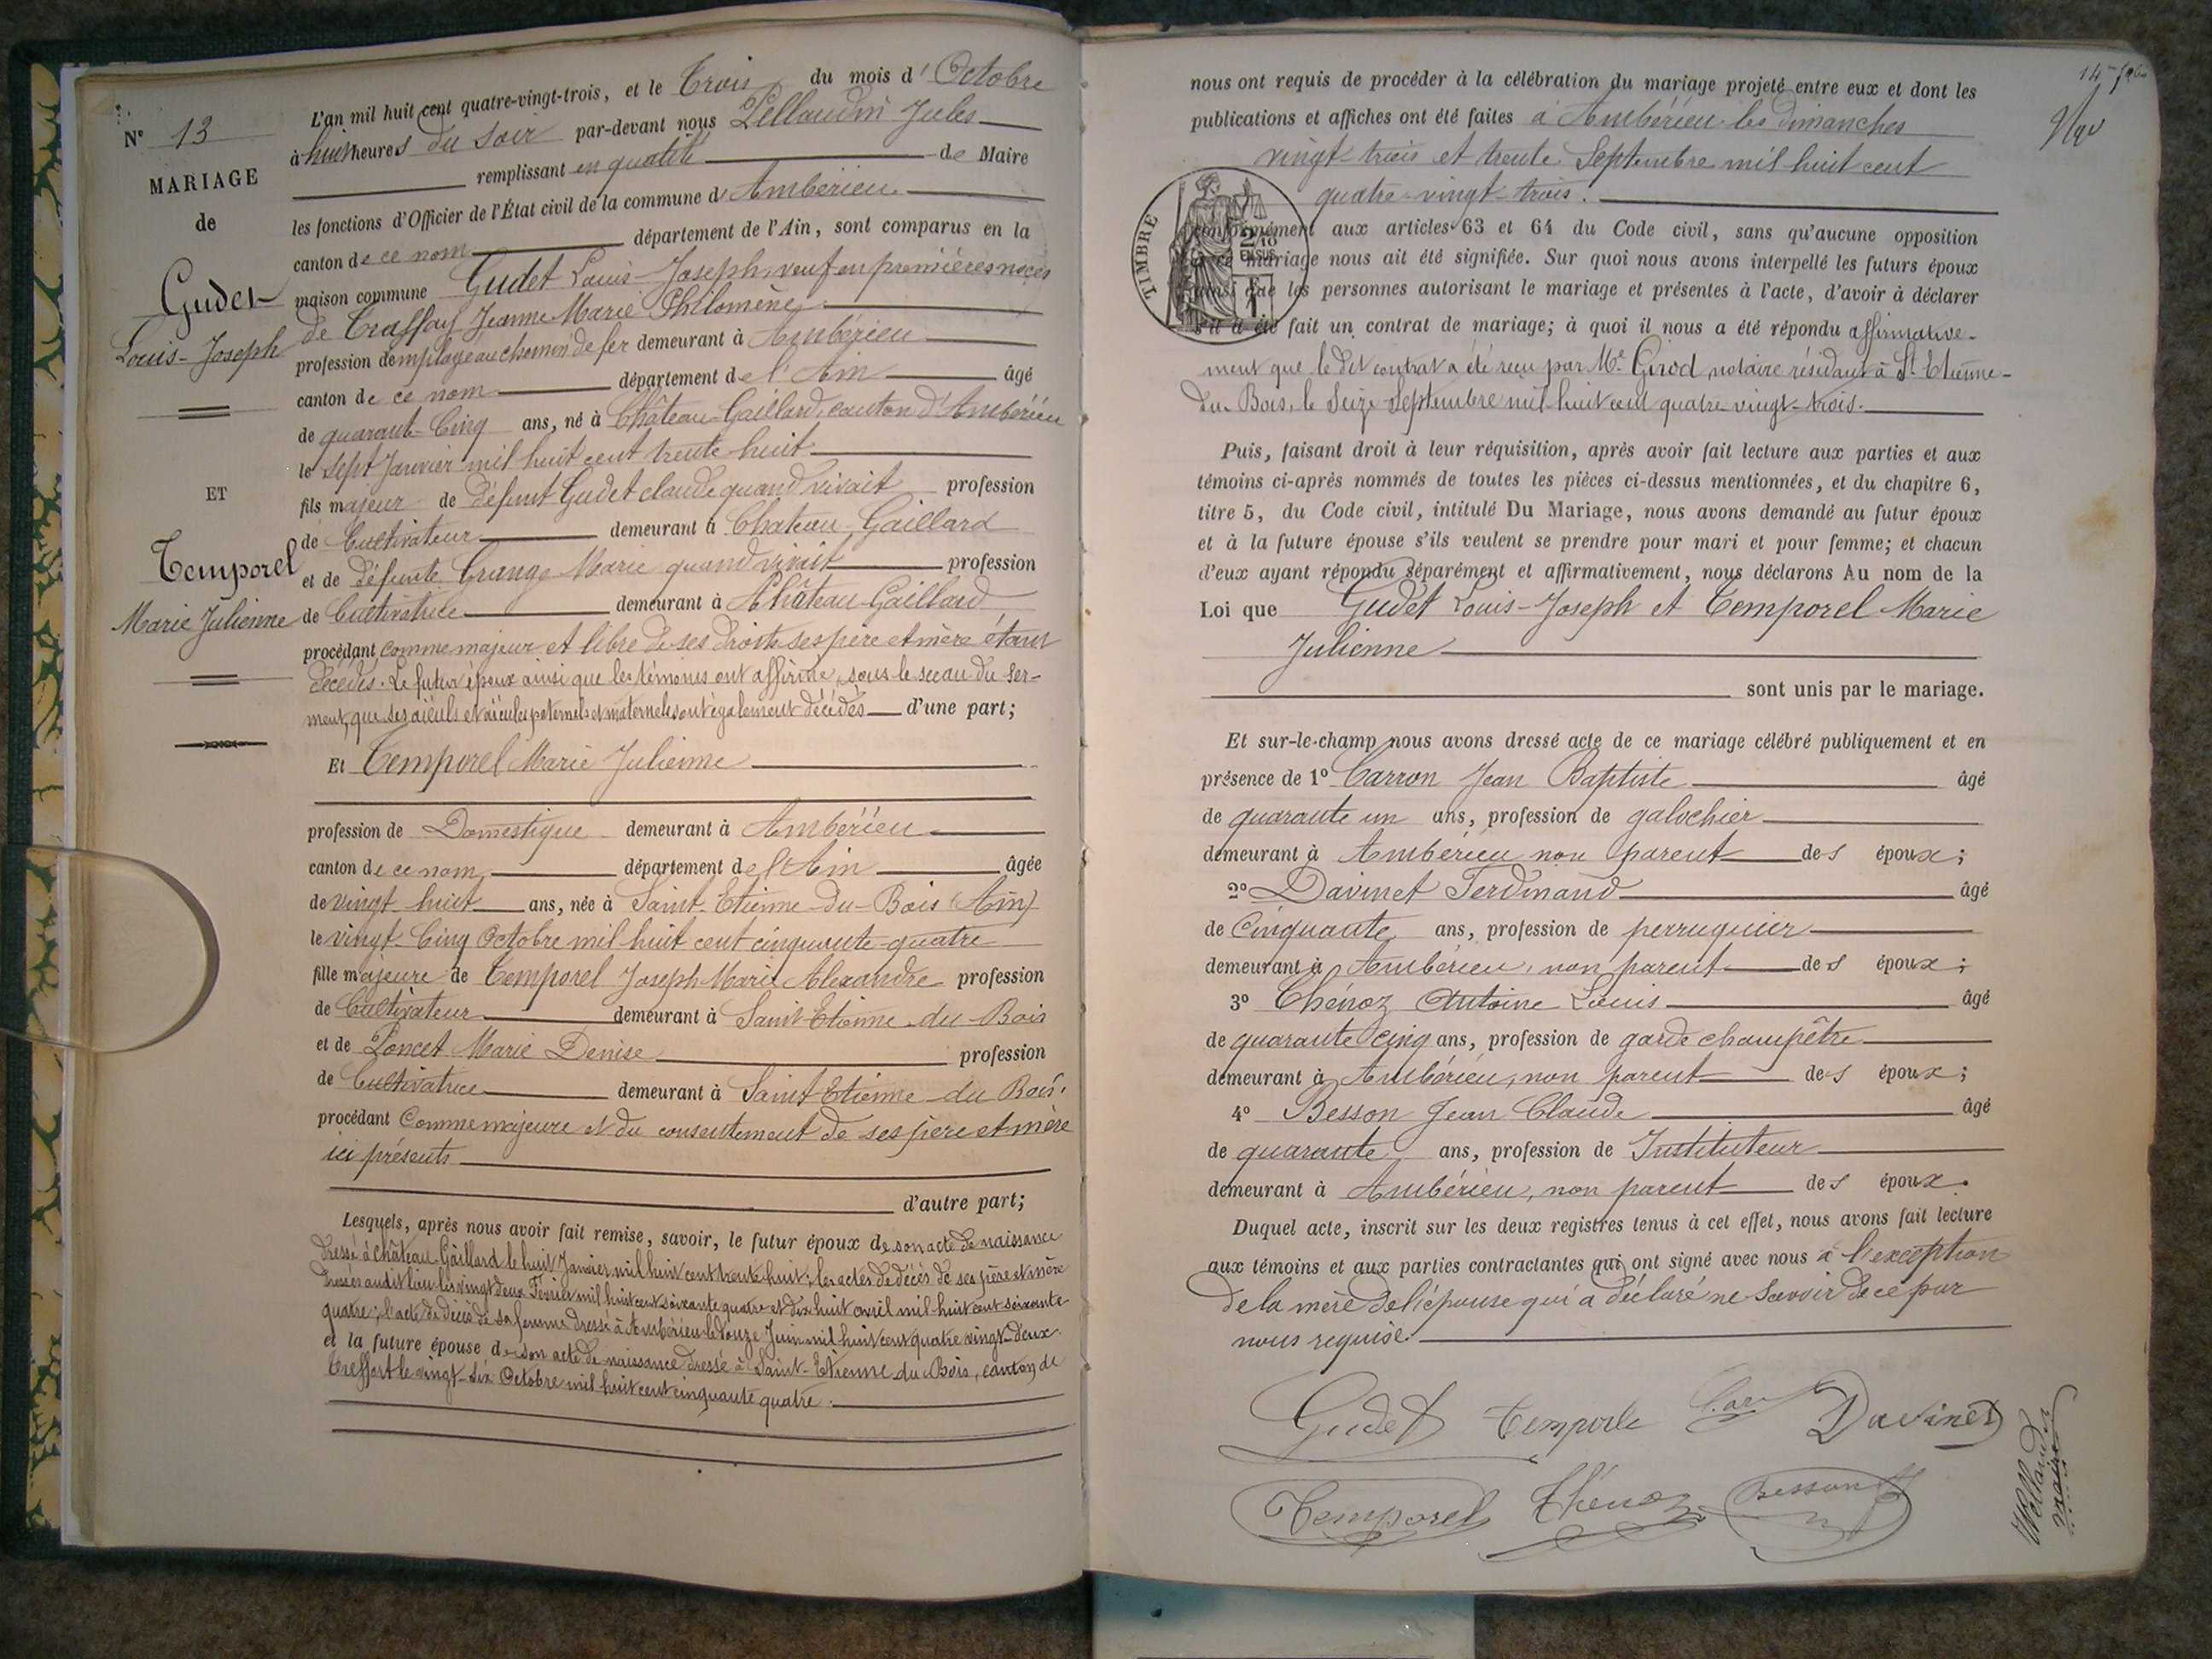 N° 13
MARIAGE
de
Gudet
Louis-Joseph
ET
Temporel
Marie Julienne
L'an mil huit cent quatre-vingt-trois, et le Trois du mois d'Octobre
à huit heures du soir par-devant nous Pellaudin Jules
remplissant en qualité de Maire
les fonctions d'Officier de l'État civil de la commune d'Ambérieu
canton de ce nom département de l'Ain, sont comparus en la
maison commune Gudet Louis-Joseph, veuf en premières noces
de Traffay Jeanne Marie Philomène
profession d'employé au chemin de fer demeurant à Ambérieu
canton de ce nom département de l'Ain âgé
de quarante-Cinq ans, né à Château-Gaillard, canton d'Ambérieu
le sept Janvier mil huit cent trente huit
fils majeur de défunt Gudet claude quand vivait profession
de Cultivateur demeurant à Chateau-Gaillard
et de défunte Grange Marie quand vivait profession
de Cultivatrice demeurant à Château-Gaillard
procédant comme majeur et libre de ses droits ses père et mère étant
décédés. Le futur époux ainsi que les témoins ont affirmé, sous le sceau du ser-
ment, que ses aïeuls et aïeules paternels et maternels sont également décédés d'une part;
Et Temporel Marie Julienne
profession de Domestique demeurant à Ambérieu
canton de ce nom département de l'Ain âgée
de vingt-huit ans, née à Saint-Etienne-du-Bois (Ain)
le vingt-Cinq Octobre mil huit cent cinquante-quatre
fille majeure de Temporel Joseph Marie Alexandre profession
de Cultivateur demeurant à Saint-Etienne-du-Bois
et de Poncet Marie Denise profession
de Cultivatrice demeurant à Saint-Etienne-du Bois
procédant Comme majeure et du consentement de ses père et mère
ici présents
d'autre part;
Lesquels, après nous avoir fait remise, savoir, le futur époux de son acte de naissance
dressé à Château-Gaillard le huit Janvier mil huit cent trente huit; les actes de décès de ses père et mère
dressés audit lieu les vingt deux Février mil huit cent soixante quatre et dix huit avril mil huit cent soixante
quatre; l'acte de décès de sa femme dressé à Ambérieu le douze Juin mil huit cent quatre vingt-deux
et la future épouse de son acte de naissance dressé à Saint-Etienne du Bois, canton de
Treffort le vingt-six Octobre mil huit cent cinquante quatre.
nous ont requis de procéder à la célébration du mariage projeté entre eux et dont les
publications et affiches ont été faites à Ambérieu les dimanches
vingt-trois et trente Septembre mil huit cent
quatre-vingt-trois.
TIMBRE
conformément aux articles 63 et 64 du Code civil, sans qu'aucune opposition
mariage nous ait été signifiée. Sur quoi nous avons interpellé les futurs époux
ainsi que les personnes autorisant le mariage et présentes à l'acte, d'avoir à déclarer
s'il a été fait un contrat de mariage; à quoi il nous a été répondu affirmative-
ment que le dit contrat a été reçu par Me Girod, notaire résidant à St Etienne-
du-Bois, le Seize Septembre mil huit cent quatre vingt-trois.
Puis, faisant droit à leur réquisition, après avoir fait lecture aux parties et aux
témoins ci-après nommés de toutes les pièces ci-dessus mentionnées, et du chapitre 6,
titre 5, du Code civil, intitulé Du Mariage, nous avons demandé au futur époux
et à la future épouse s'ils veulent se prendre pour mari et pour femme; et chacun
d'eux ayant répondu séparément et affirmativement, nous déclarons Au nom de la
Loi que Gudet Louis-Joseph et Temporel Marie
Julienne
sont unis par le mariage.
Et sur-le-champ nous avons dressé acte de ce mariage célébré publiquement et en
présence de 1° Carron Jean Baptiste âgé
de quarante un ans, profession de galochier
demeurant à Ambérieu non parent des époux;
2° Davinet Ferdinand âgé
de Cinquante ans, profession de perruquier
demeurant à Ambérieu, non parent des époux;
3° Thénoz Antoine Louis âgé
de quarante cinq ans, profession de garde champêtre
demeurant à Ambérieu, non parent des époux;
4° Besson Jean Claude âgé
de quarante ans, profession de Instituteur
demeurant à Ambérieu, non parent des époux.
Duquel acte, inscrit sur les deux registres tenus à cet effet, nous avons fait lecture
aux témoins et aux parties contractantes qui ont signé avec nous à l'exception
de la mère de l'épouse qui a déclaré ne savoir de ce par
nous requise.
Gudet Temporle Davinet
Temporel Thénoz Besson
Pellaudin
maire